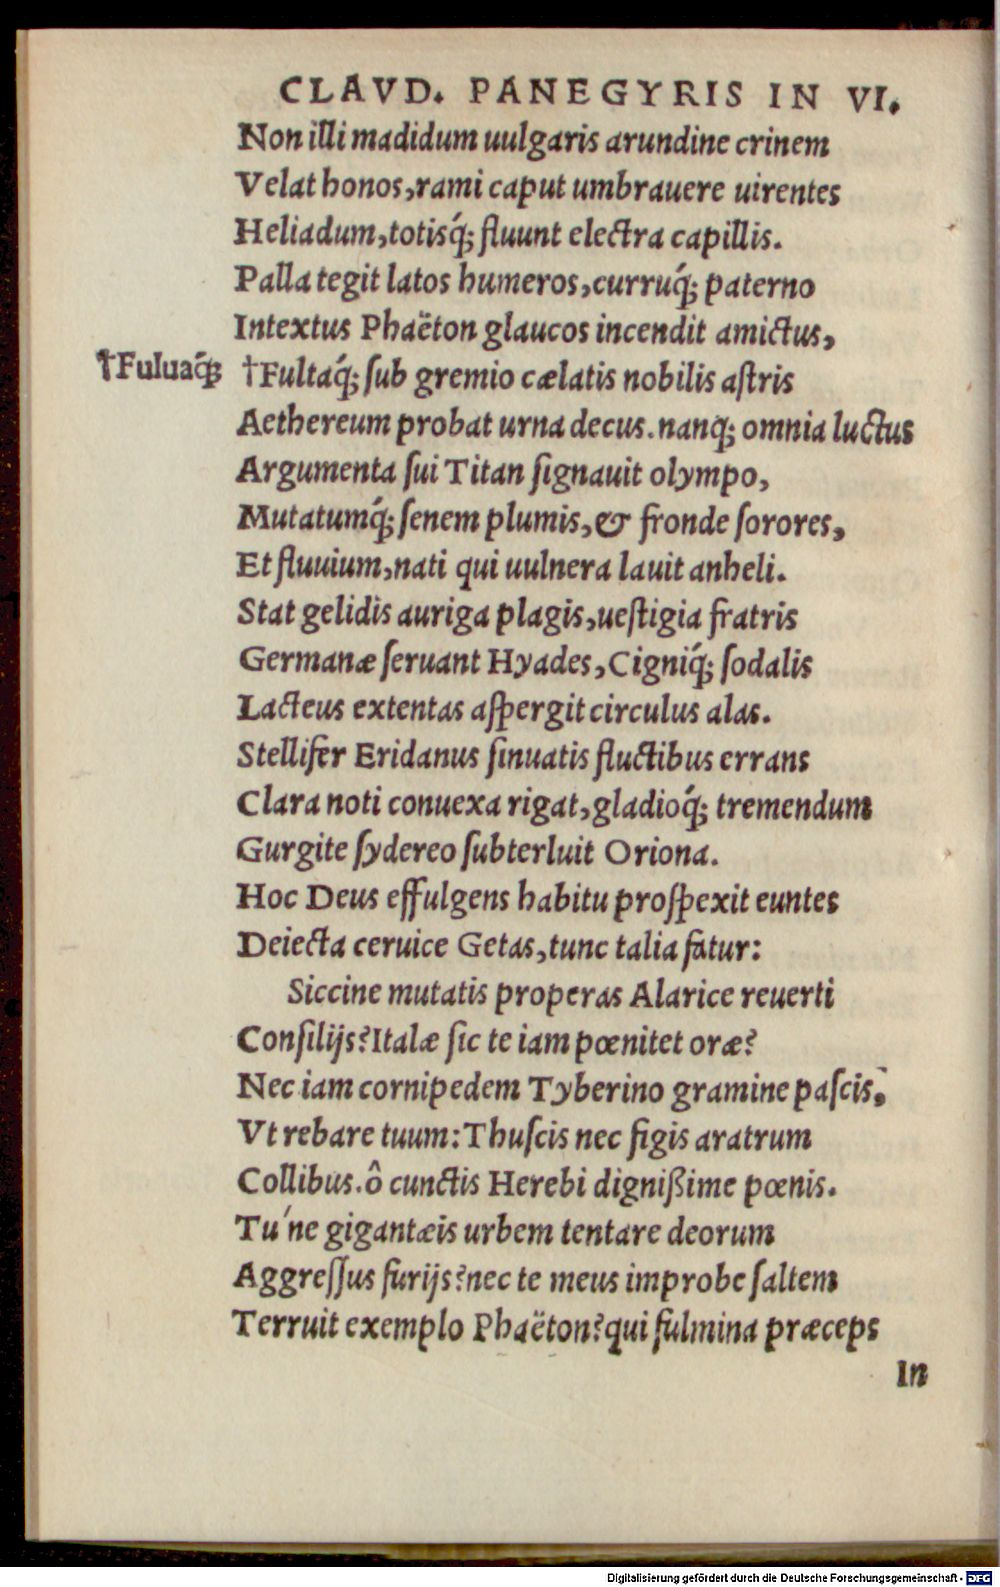 CLAVD. PANEGYRIS IN VI.
Non illi madidum uulgaris arundine crinem
Velat honos, rami caput umbrauere uirentes
Heliadum, totisq́; fluunt electra capillis.
Palla tegit latos humeros, curruq́; paterno
Intextus Phaëton glaucos incendit amictus,
†Fuluaq́; †Fultaq́; ſub gremio cælatis nobilis aſtris
Aethereum probat urna decus. nanq; omnia luctus
Argumenta ſui Titan ſignauit olympo,
Mutatumq́; ſenem plumis, & fronde ſorores,
Et fluuium, nati qui uulnera lauit anheli.
Stat gelidis auriga plagis, ueſtigia fratris
Germanæ ſeruant Hyades, Cigniq́; ſodalis
Lacteus extentas aſpergit circulus alas.
Stellifer Eridanus ſinuatis fluctibus errans
Clara noti conuexa rigat, gladioq́; tremendum
Gurgite ſydereo ſubterluit Oriona.
Hoc Deus effulgens habitu proſpexit euntes
Deiecta ceruice Getas, tunc talia fatur:
Siccine mutatis properas Alarice reuerti
Conſilijs? Italæ ſic te iam pœnitet oræ?
Nec iam cornipedem Tyberino gramine paſcis,
Vt rebare tuum: Thuſcis nec figis aratrum
Collibus. ô cunctis Herebi dignißime pœnis.
Tú ne gigantæis urbem tentare deorum
Aggreſſus furijs? nec te meus improbe ſaltem
Terruit exemplo Phaëton? qui fulmina præceps
In
Digitalisierung gefördert durch die Deutsche Forschungsgemeinschaft - DFG